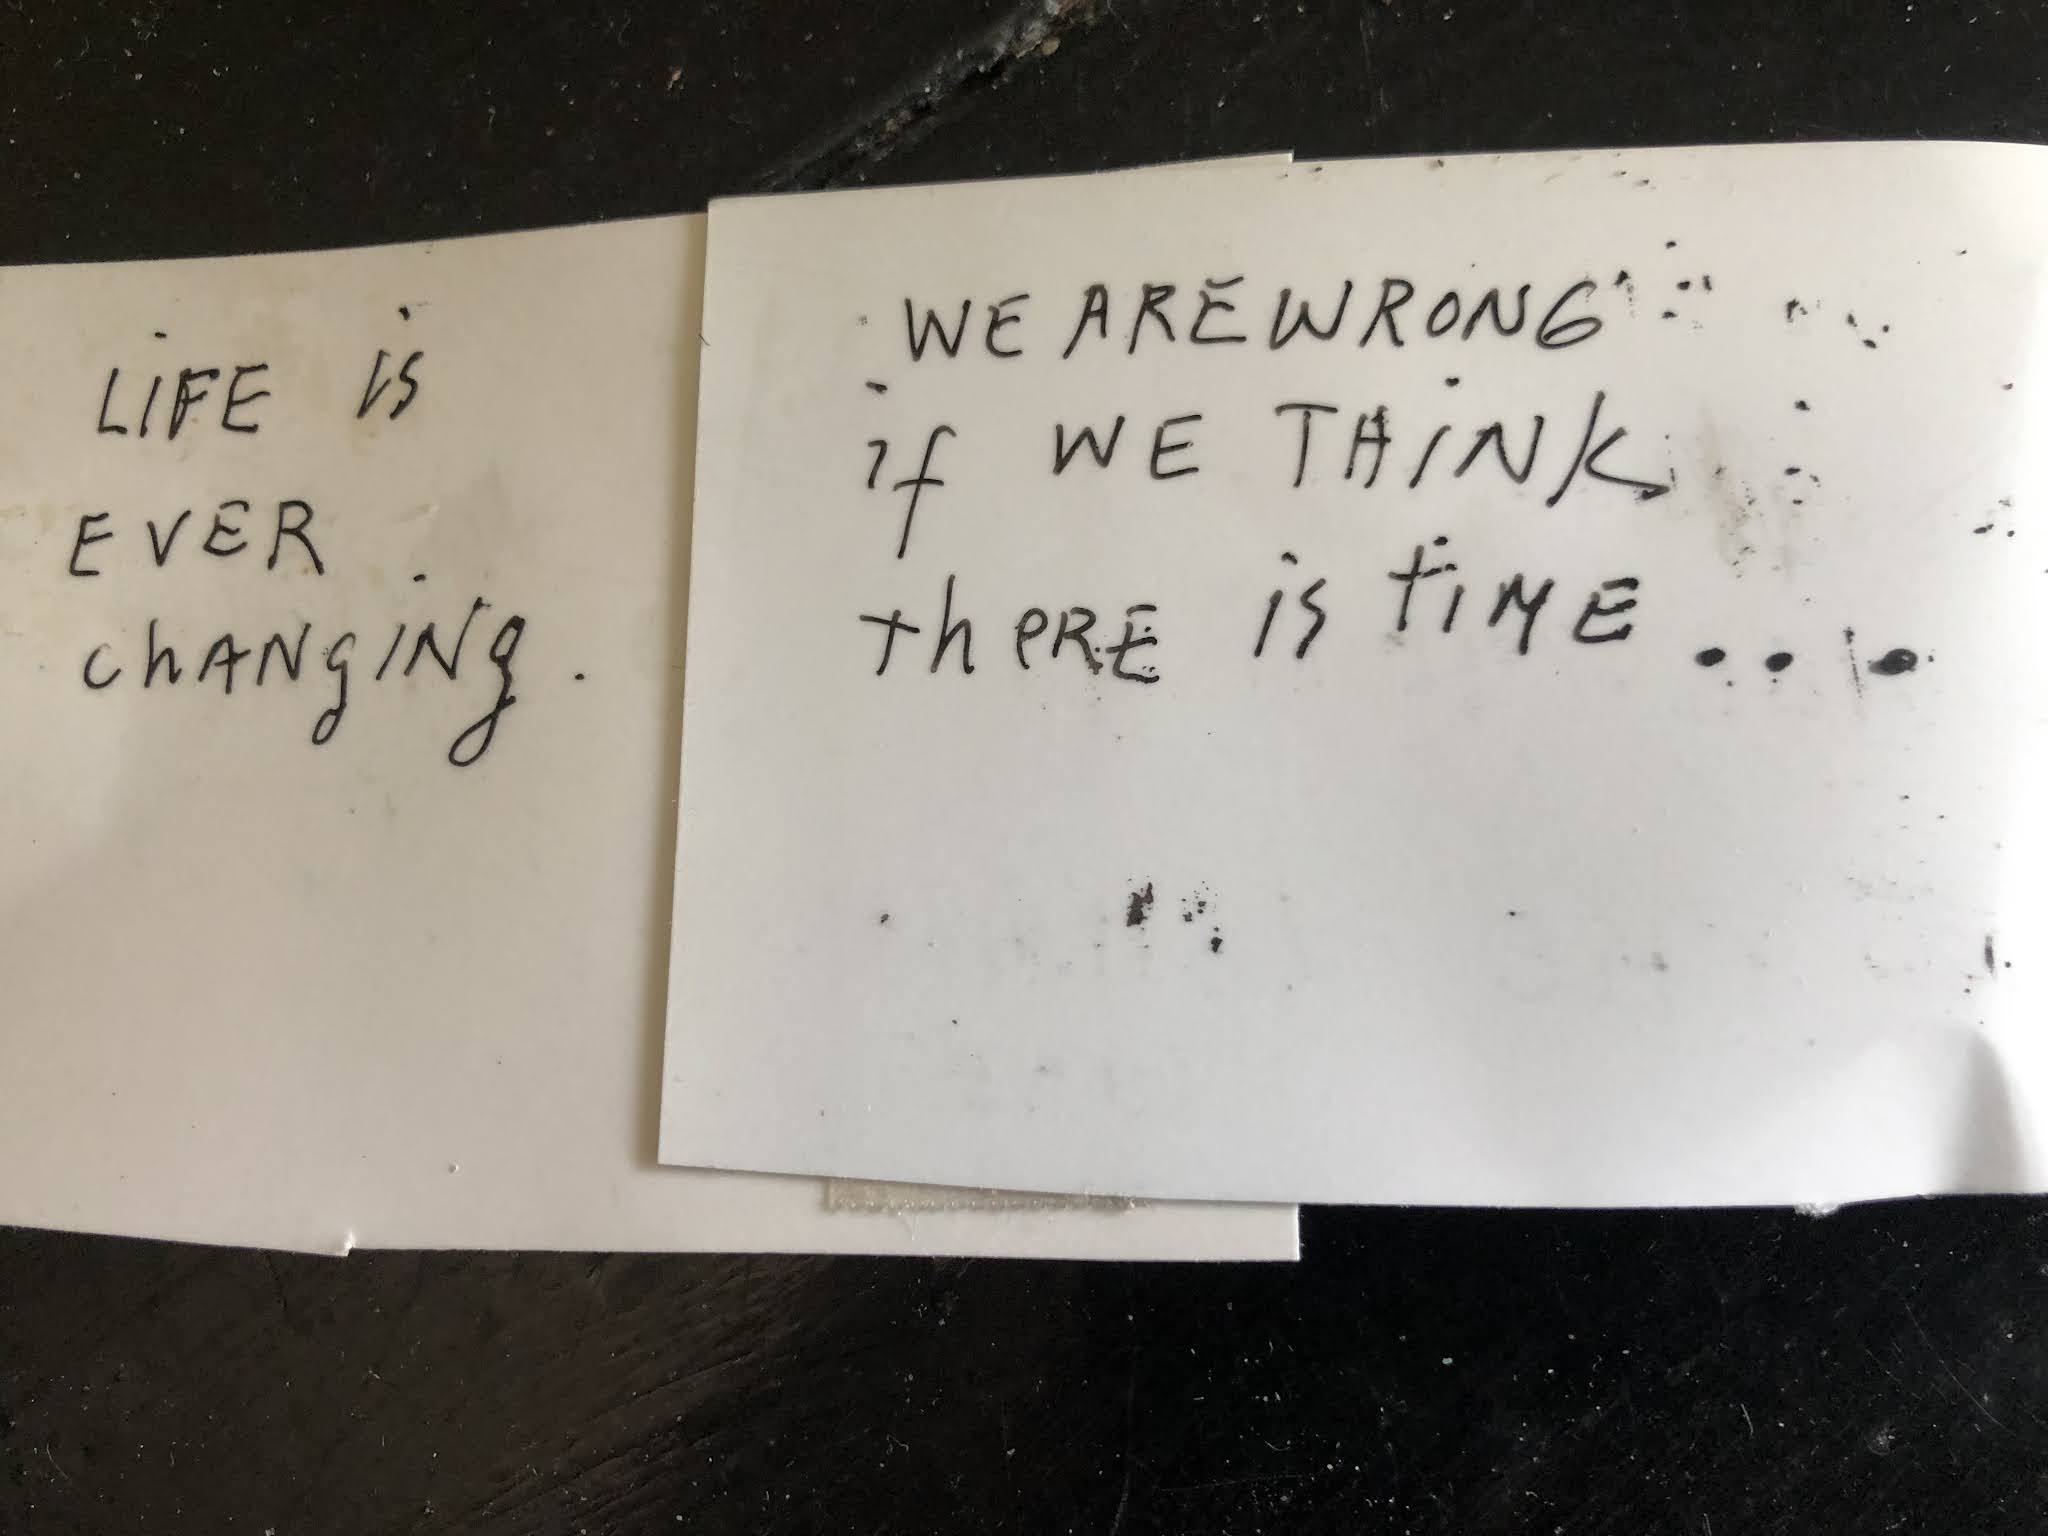 LiFE is
EVER
chANgiNg.
WE ARE WRONG
if WE THiNK
thERE is tiME...